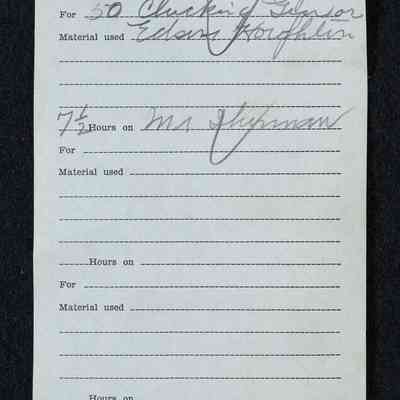 For 50 Clucking Tenor
Material used Edson
7½ Hours on Mr Shipman
For
Material used
Hours on
For
Material used
Hours on